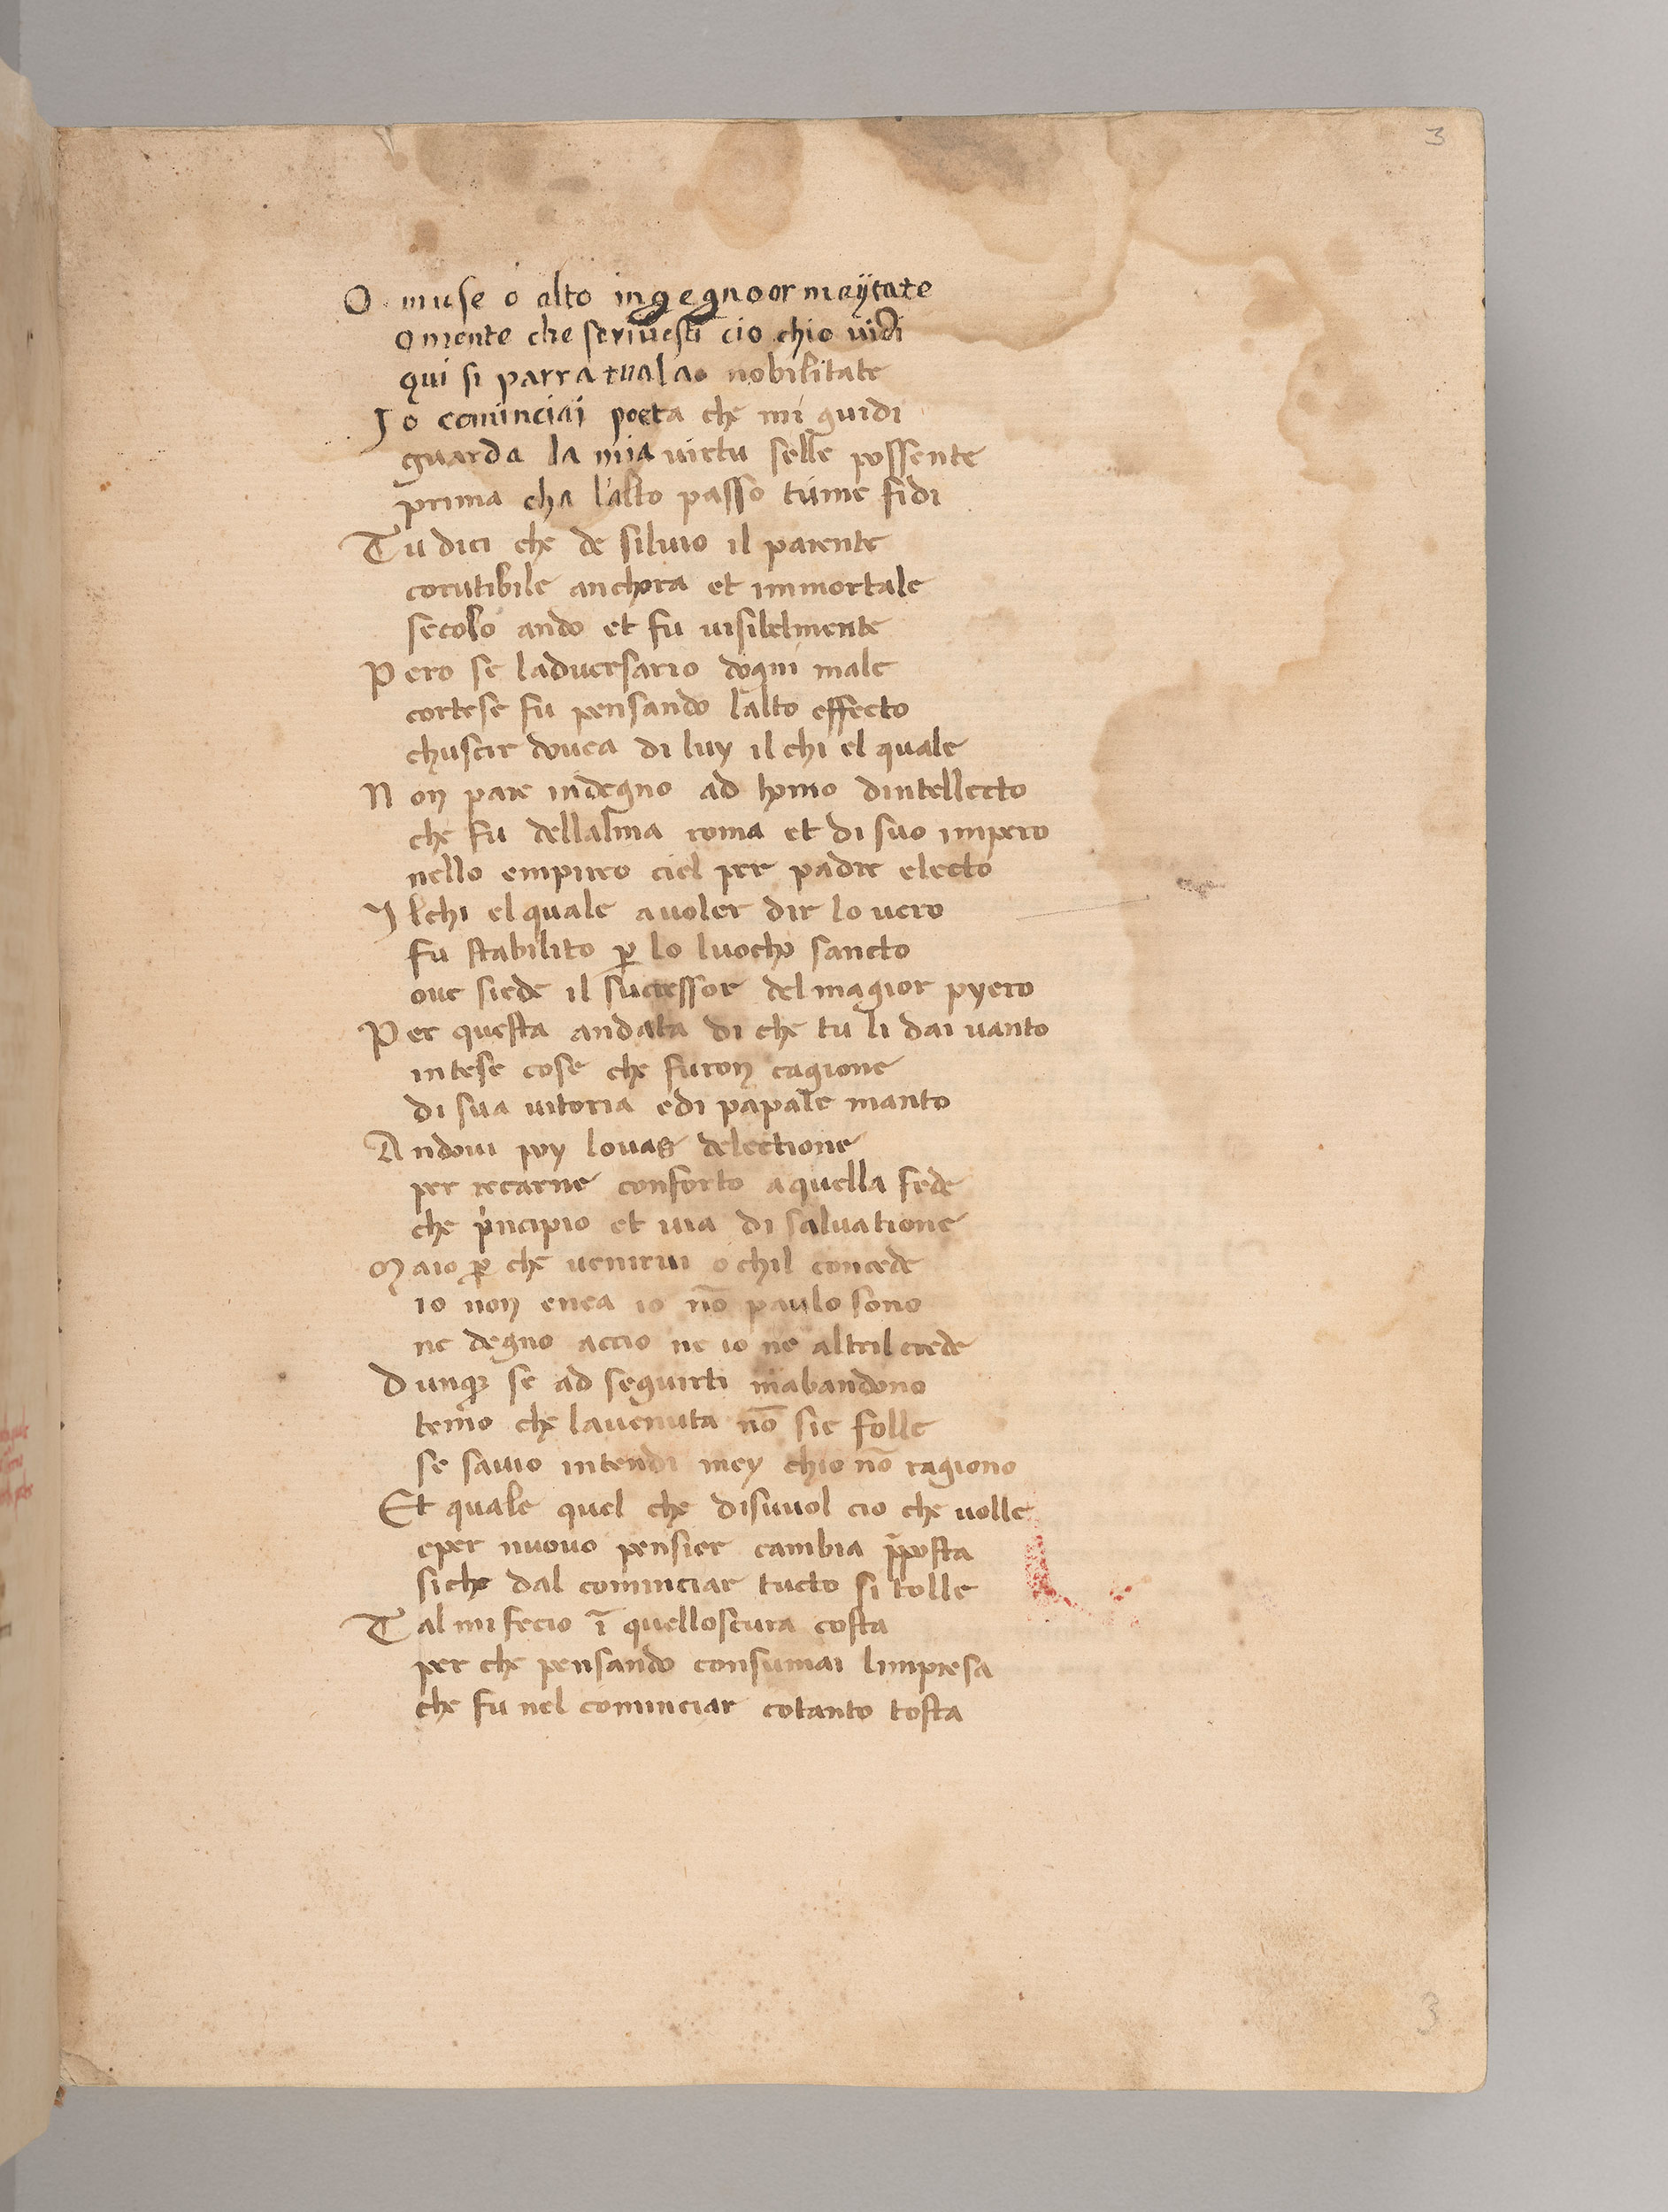 3
O muse o alto ingegno or maytate
o mente che scrivesti cio chio vidi
qui si parra tuala nobilitate
Jo cominciai poeta che mi guidi
guarda la mia virtu selle possente
prima cha lalto passo tume fidi
Tu dici che de siluio il parente
corutibile anchora et immortale
secolo ando et fu uisibelmente
Pero se laduersario dogni male
cortese fu pensando lalto effecto
chuscir douea di luy il chi el quale
Non pare indegno ad homo dintellecto
che fu dellalma roma et di suo impero
nello empireo ciel per padre electo
Jlchi el quale a uoler dir lo uero
fu stabilito ꝑ lo luocho sancto
oue siede il successor del magior pyero
Per questa andata di che tu li dai uanto
intese cose che furon cagione
di sua uitoria edi papale manto
Andoui poy louas delectione
per recarne conforto a quella fede
che principio et uia di saluatione
Maio ꝑ che uenirui o chil concede
io non enea io nō paulo sono
ne degno accio ne io ne altril crede
Dunqꝫ se ad seguirti mabandono
temo che lauenuta nō sie folle
se sauio intendi mey chio nō ragiono
Et quale quel che disuuol cio che uolle
eper nuouo pensier cambia ꝓposta
siche dal cominciar tucto si tolle
Tal mi fecio ī quelloscura costa
per che pensando consumai limpresa
che fu nel cominciar cotanto tosta
3